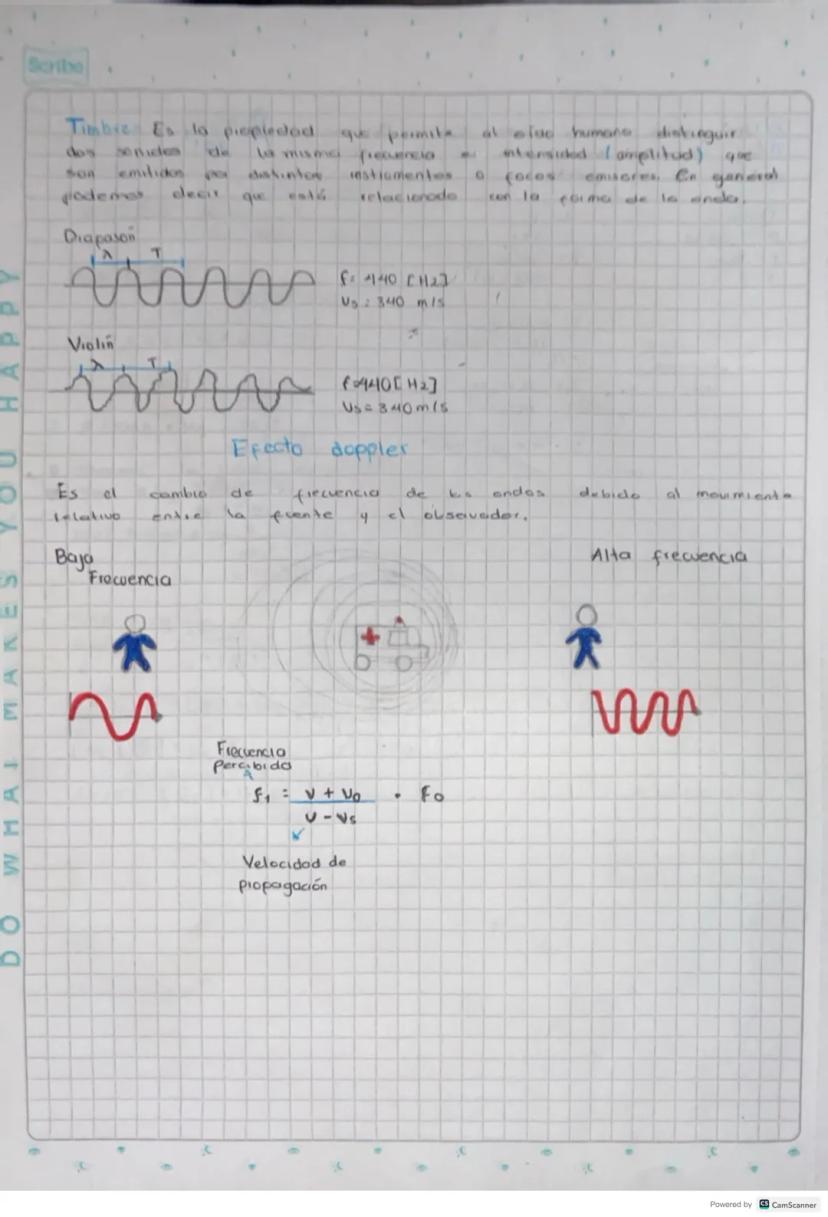 Scribe
Timbre Es la propiedad que permite al oído humano distinguir
dos sonidos de la misma frecuencia e intensidad (amplitud) que
son emitidos por distintos instrumentos o focos emisores. En general
podemos decir que está relacionado con la forma de la onda.
Diapasón
λ T
f= 440 [Hz]
Vs = 340 m/s
Violín
λ T
f=440[Hz]
Vs = 340 m/s
Efecto doppler
Es el cambio de frecuencia de las ondas debido al movimiento
relativo entre la fuente y el obsevador.
Baja
Frecuencia
Alta frecuencia
Frecuencia
Percibida
f₁ = V + Vo / V - Vs . Fo
Velocidad de
propagación
DO WHAT MAKES YOU HAPPY
Powered by CS CamScanner